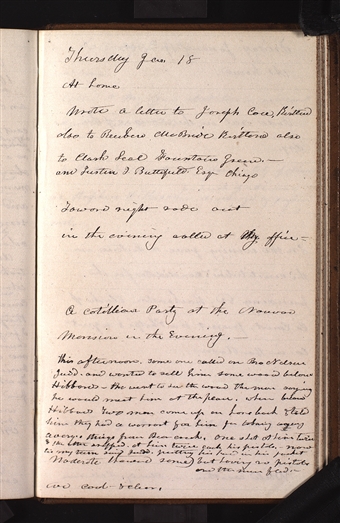 Thursday Jan 18
At home
Wrote a letter to Joseph Coe,
also to Reuben McBride Kirtland also
to Clark Leal Fountain Green.—
and Justin J. Butterfield Esqr Chicago
Toward night rode out
in the evening called at My office—
A cotillion Party at the Nauvoo
Mansion in the Evening.—
this afternoon. some one called on
Judd. and wanted to sell him some wood below
Hibbard— he went to see the wood the man saying
he would meet him at the place, when below
Hibbard Two men come up on horse back & told
him they had a warrant for him for taking away
a things from Bear creek, one shot at him twice
at him twice with his pistols, now
my turn said Judd. putting his hand in his pocket
but having no pistols
and the men fled